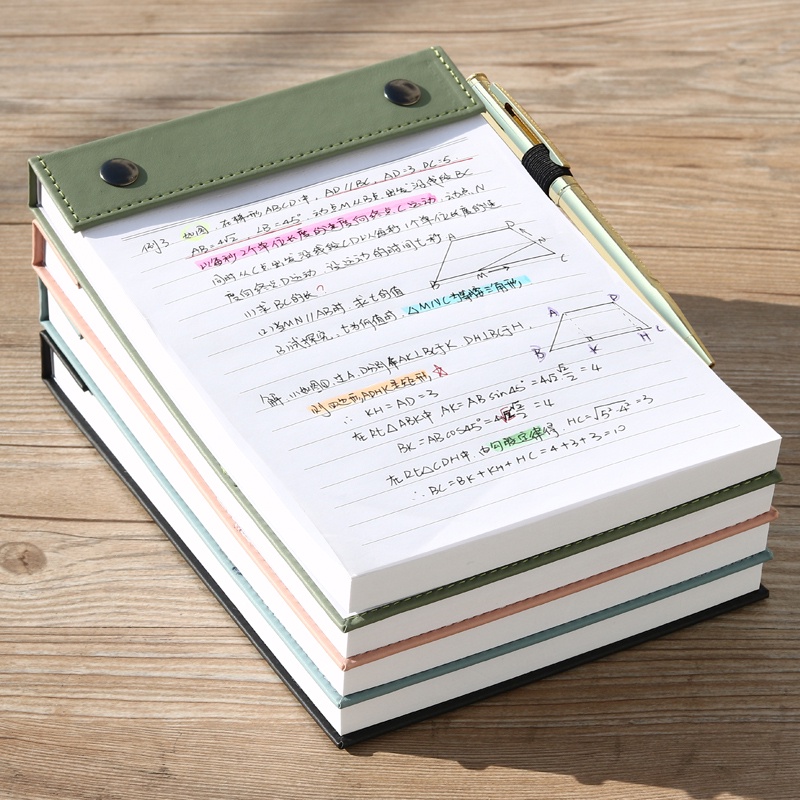 例3 如图,在梯形ABCD中,AD//BC,AD=3 DC=5
AB=4√2 ∠B=45° 动点M从B点出发沿线段BC
以每秒2个单位长度的速度向终点C运动,动点N
同时从C点出发沿线段CD以每秒1个单位长度的速
度向终点D运动,设运动的时间t秒
(1)求BC的长?
(2)当MN//AB时 求t的值
3)试探究,t为何值时,△MNC为等腰三角形
A D
N
B M C
A D
B K H C
解,(1)如图①,过A.D分别作AK⊥BC于K DH⊥BC于H.
则四边形ADHK是矩形
∴ KH=AD=3
在Rt△ABK中 AK=AB sin45°=4√2·√2/2=4
BK=ABcos45°=4√2·√2/2=4
在Rt△CDH中,由勾股定律得,HC=√5²-4²=3
∴BC=BK+KH+HC=4+3+3=10